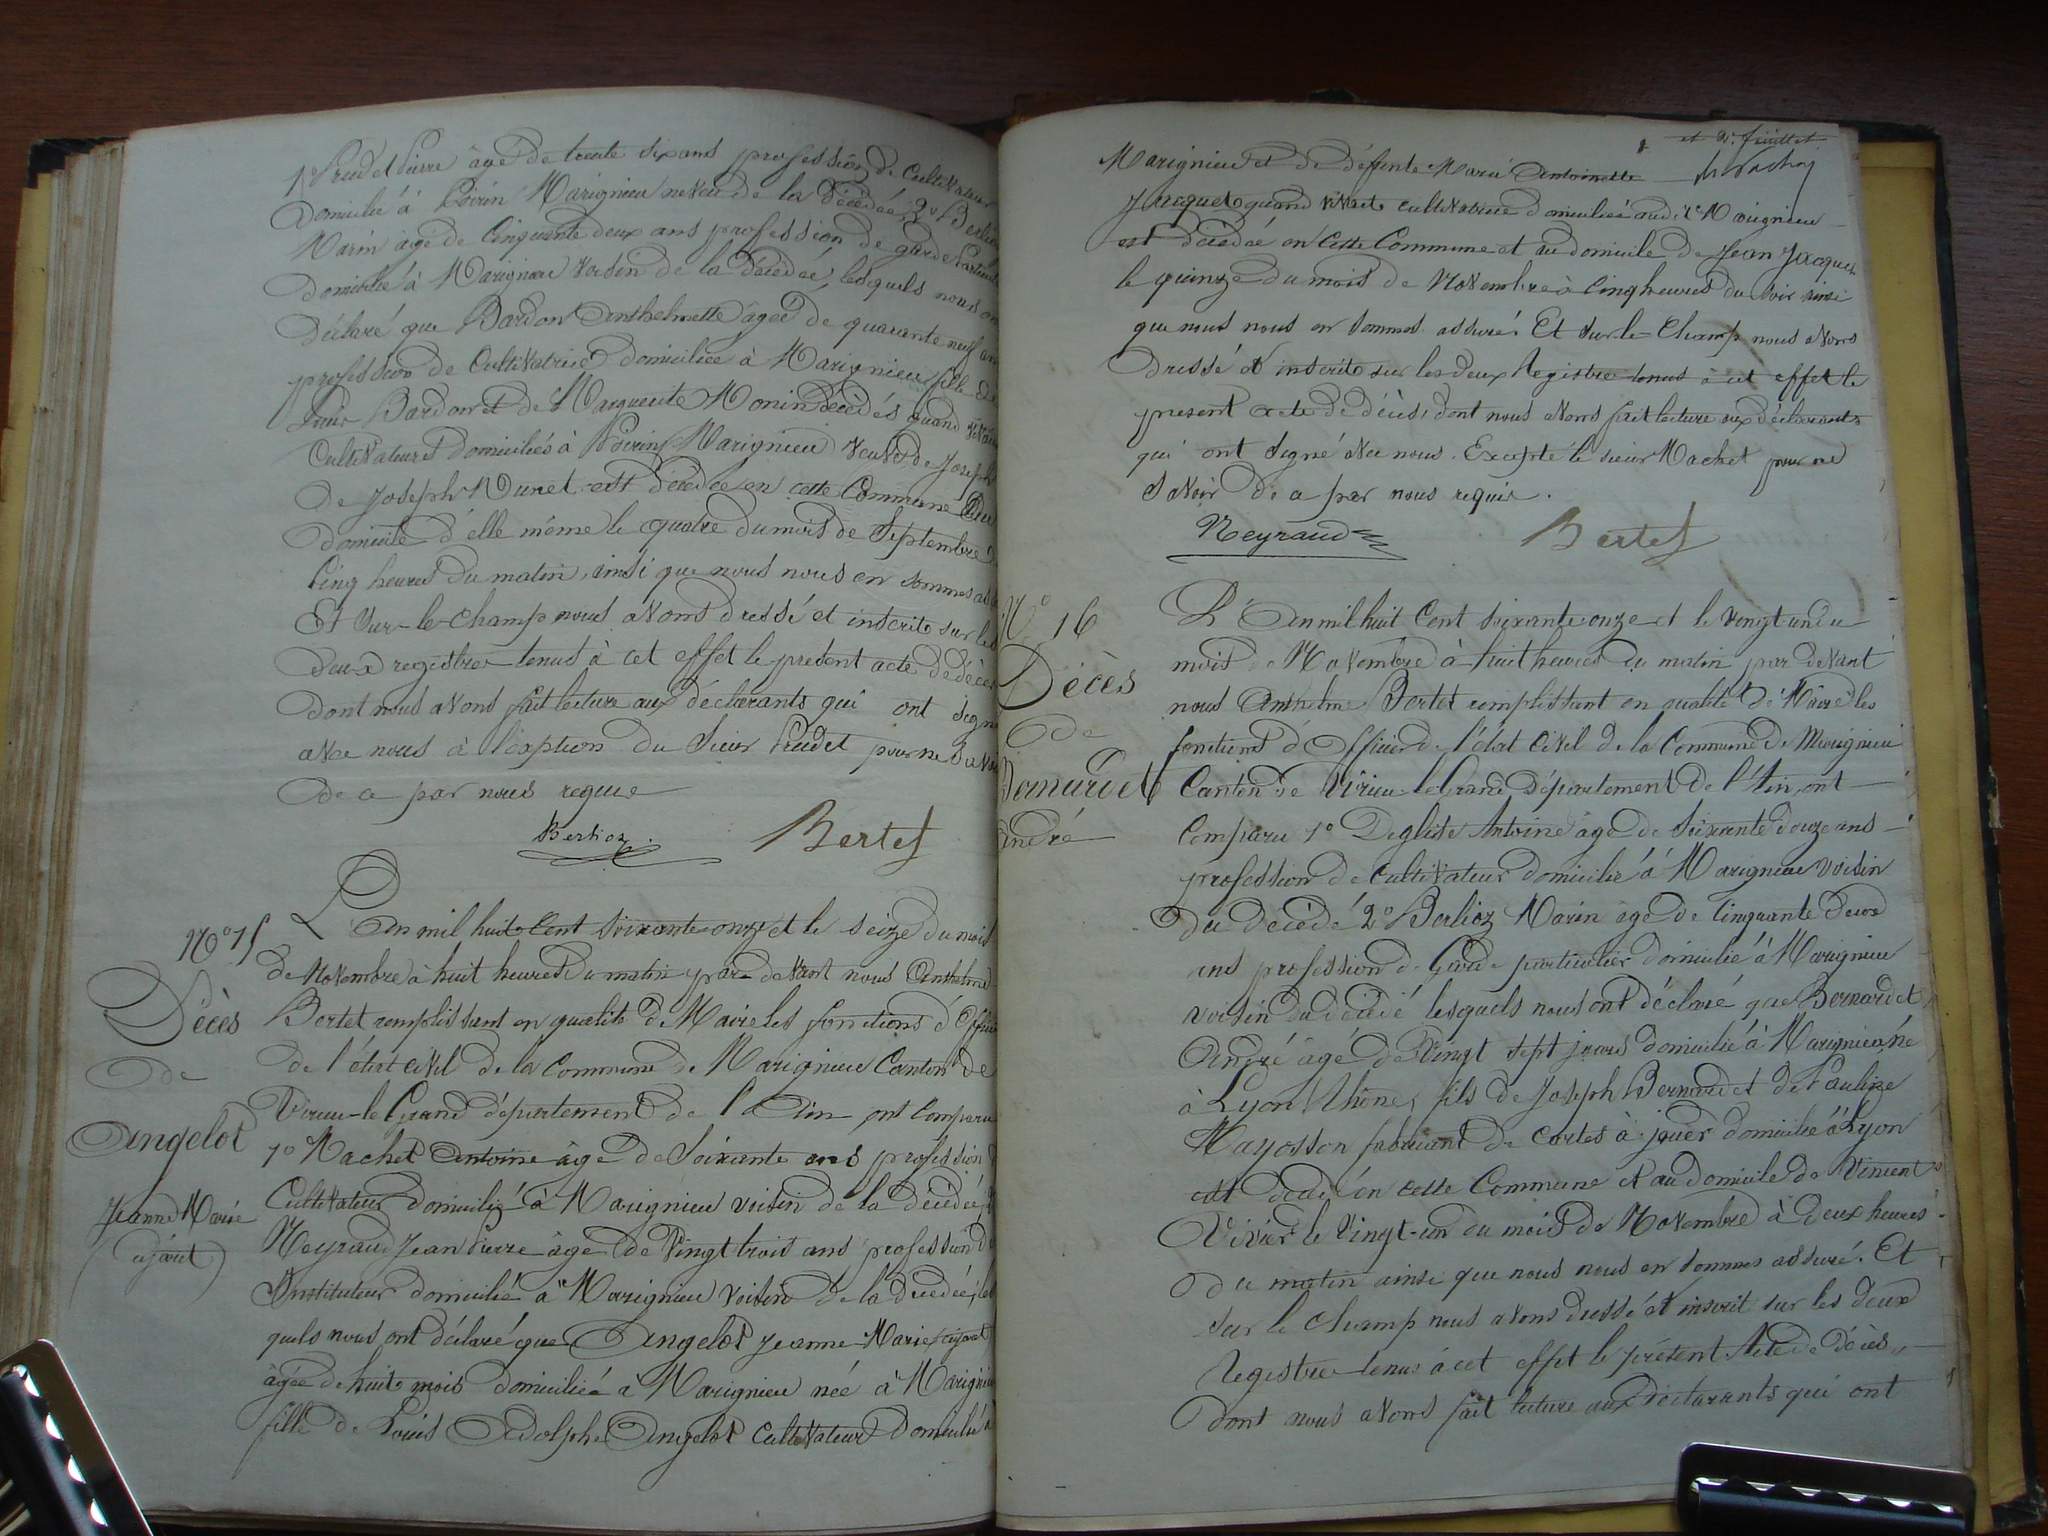 1° Prudet Pierre âgé de trente six ans profession de Cultivateur
Domicilié à Poirin Marignieu neveu de la Décédée, 2° Berlioz
Marin âgé de Cinquante deux ans profession de garde Particulier
domicilié à Marignieu voisin de la décédée, lesquels nous ont
Déclaré que Bardon Anthelmette âgée de quarante neuf ans
profession de Cultivatrice domiciliée à Marignieu fille de
Bardon et de Marguerite Monin décédés quand vivaient
Cultivateurs domiciliés à Poirin Marignieu veuve de Joseph
de Joseph Munet est décédée en cette Commune et au
domicile d'elle même le quatre du mois de Septembre à
Cinq heures du matin, ainsi que nous nous en sommes
Et Sur-le-champ nous avons dressé et inscrit sur les
deux registres tenus à cet effet le présent acte de décès
dont nous avons fait lecture aux déclarants qui ont signé
avec nous à l'exption du Sieur Prudet pour ne savoir
de ce par nous requis
Berlioz Bertet
N° 15
Décès
de
Angelot
Jeanne Marie
(ajout)
L'An mil huit Cent soixante-onze et le seize du mois
de Novembre à huit heures du matin par-devant nous Anthelme
Bertet remplissant en qualité de Maire les fonctions d'Officier
de l'état civil de la Commune de Marignieu Canton de
Virieu-le-Grand département de l'Ain ont Comparu
1° Machet Antoine âgé de Soixante ans profession
Cultivateur domicilié à Marignieu voisin de la décédée
Neyraud Jean Pierre âgé de Vingt trois ans profession d'
Instituteur domicilié à Marignieu voisin de la décédée, les
quels nous ont déclaré que Angelot Jeanne-Marie
âgée de huit mois domiciliée à Marignieu née à Marignieu
fille de Louis Adolphe Angelot Cultivateur domicilié à
et feuillet
Marignieu et de défunte Marie Antoinette
Jacquet quand vivait cultivatrice domiciliée audit Marignieu
est décédée en Cette Commune et au domicile de Jean Jacquet
le quinze du mois de Novembre à Cinq heures du soir ainsi
que nous nous en sommes assuré. Et sur-le-Champ nous avons
dressé et inscrit sur les deux Registres tenus à cet effet le
présent acte de décès, dont nous avons fait lecture aux déclarants
qui ont signé avec nous. Excepté le sieur Machet pour ne
savoir de ce par nous requis.
Neyraud Bertet
N° 16
Décès
de
Bernardet
André
L'An mil huit Cent soixante-onze et le vingt un du
mois de Novembre à huit heures du matin par devant
nous Anthelme Bertet remplissant en qualité de Maire les
fonctions d'Officier de l'état Civil de la Commune de Marignieu
Canton de Virieu-le-Grand Département de l'Ain, ont
Comparu 1° Deglise Antoine âgé de Soixante douze ans
profession de Cultivateur domicilié à Marignieu voisin
du décédé 2° Berlioz Marin âgé de Cinquante deux
ans profession de Garde particulier domicilié à Marignieu
voisin du décédé lesquels nous ont déclaré que Bernardet
André âgé de Vingt sept jours domicilié à Marignieu, né
à Lyon Rhône, fils de Joseph Bernardet et de Pauline
Mayosson fabricant de cartes à jouer domicilié à Lyon
est décédé en cette Commune et au domicile de Vincent
Vivier le Vingt-un du mois de Novembre à deux heures
du matin ainsi que nous nous en sommes assuré. Et
sur le champ nous avons dressé et inscrit sur les deux
Registres tenus à cet effet le présent Acte de Décès
dont nous avons fait lecture aux déclarants qui ont